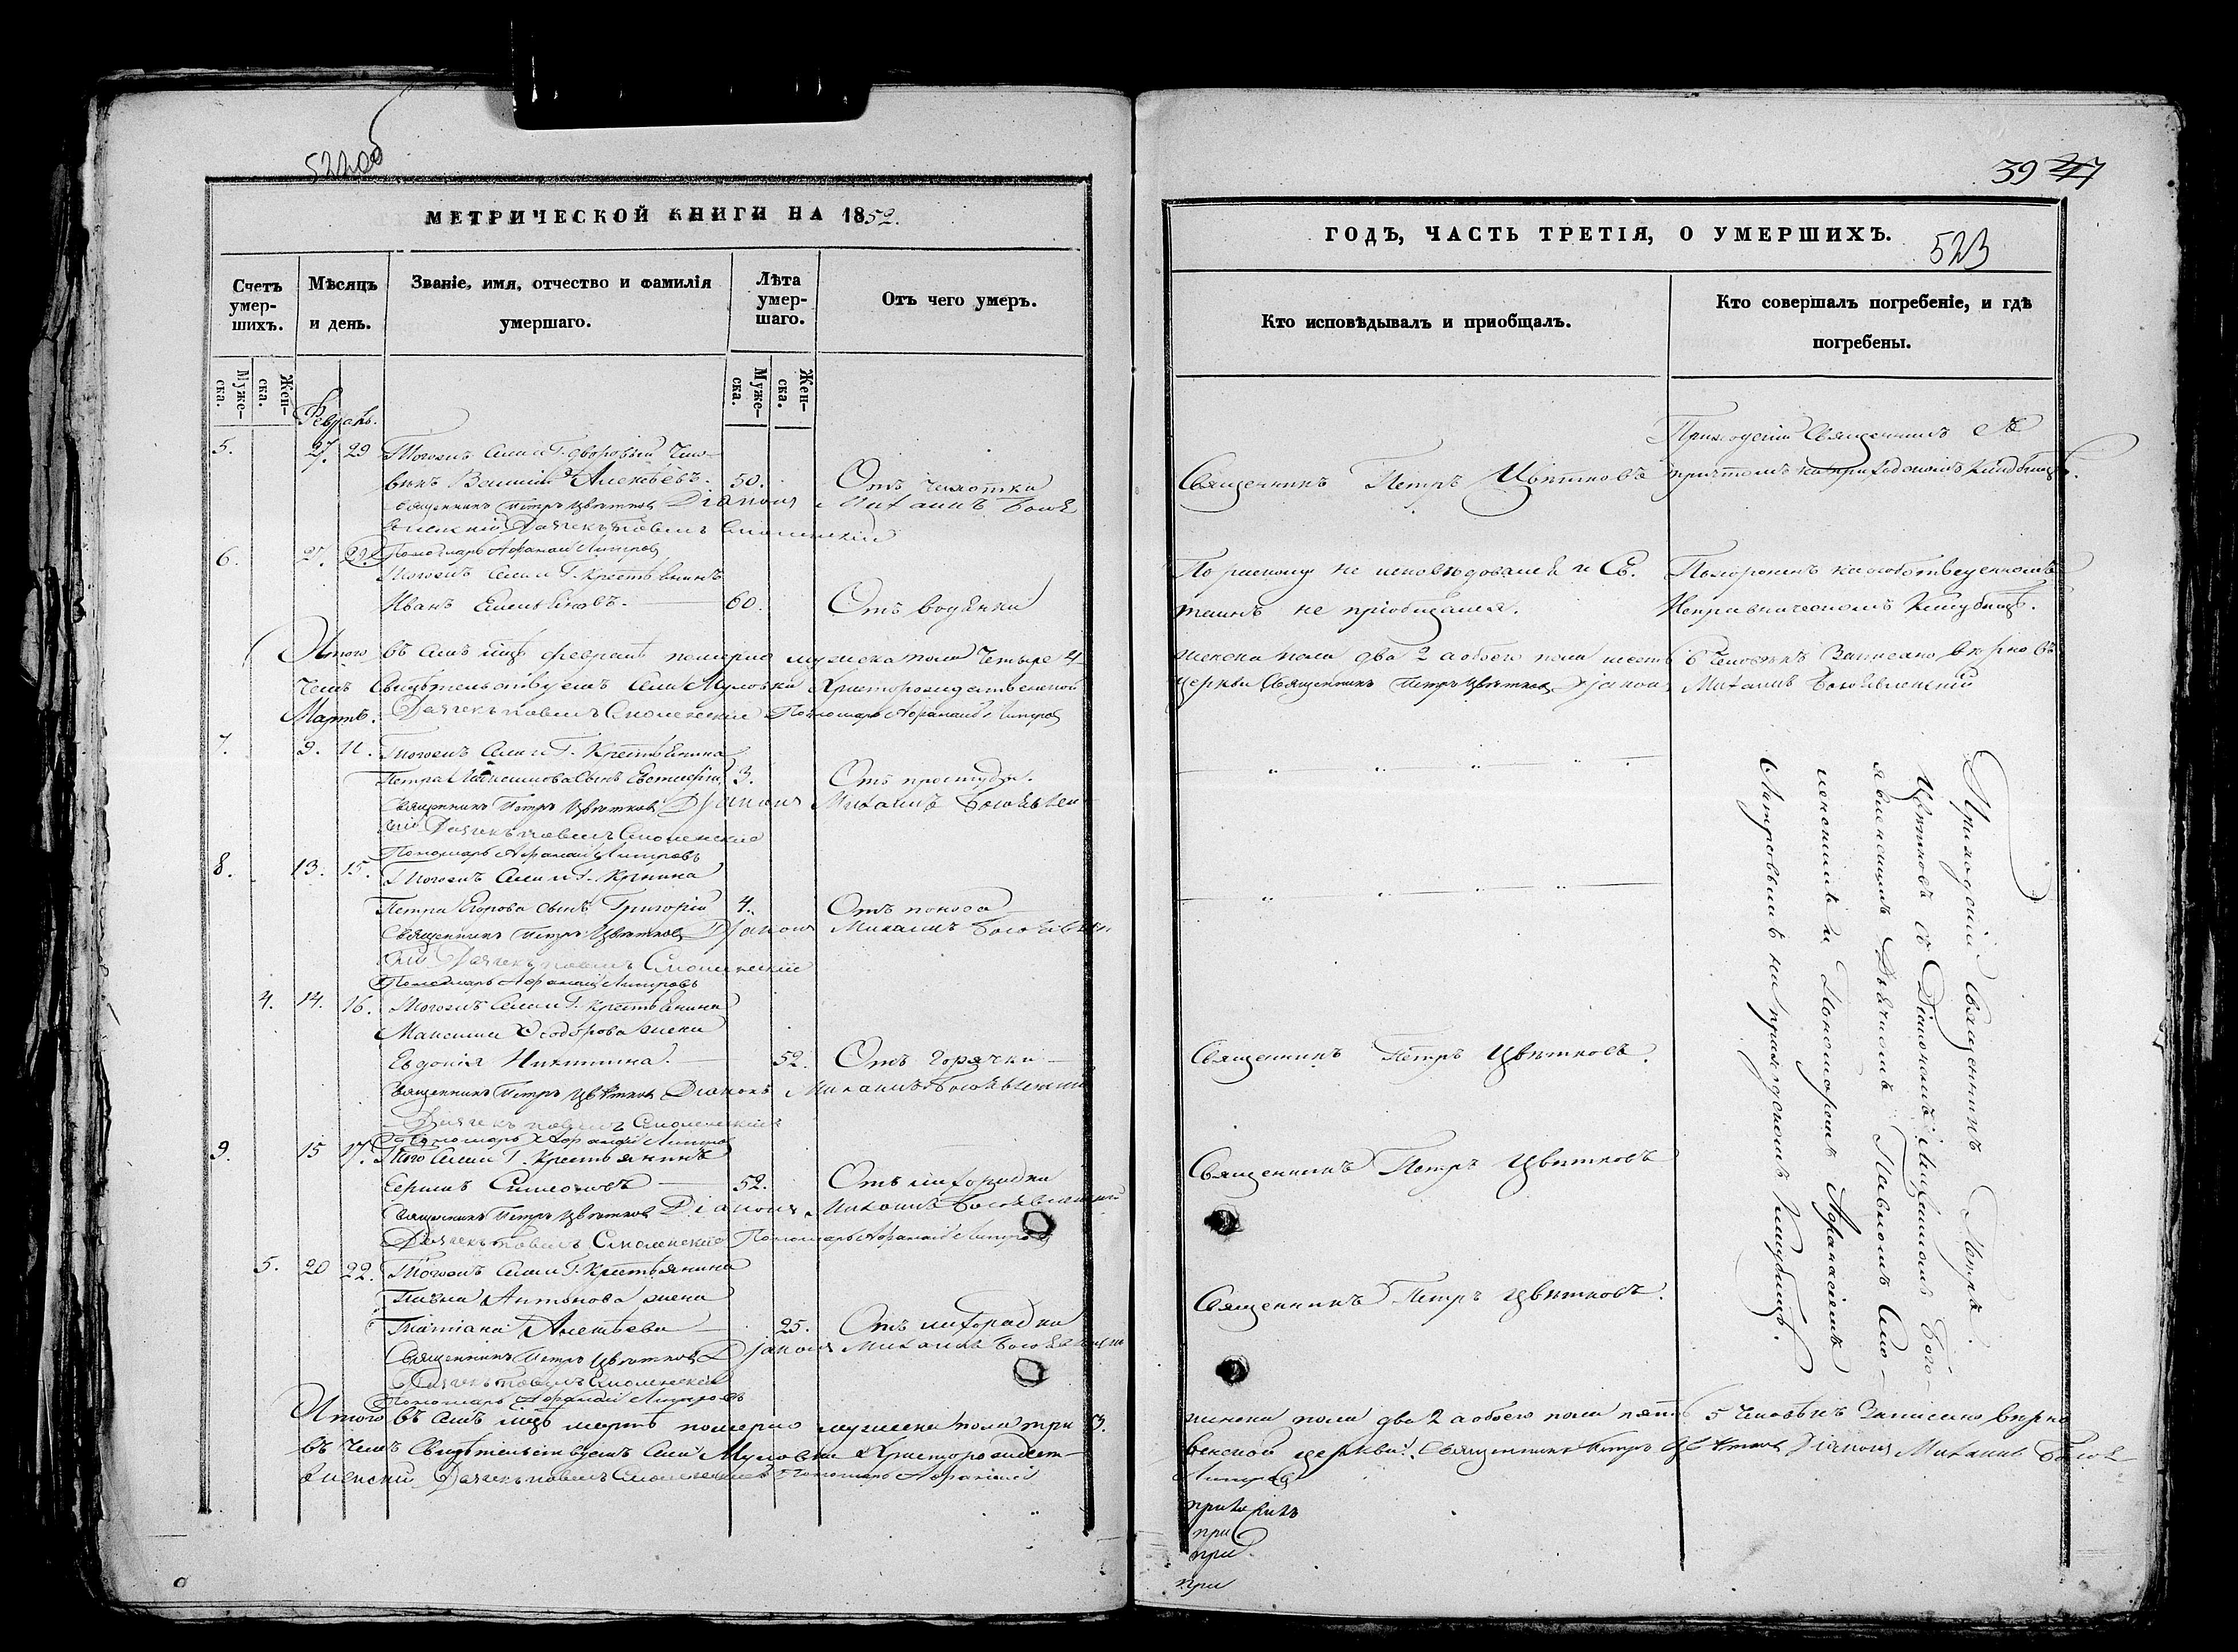 522об
МЕТРИЧЕСКОЙ КНИГИ НА 1852.
Счетъ умер-шихъ.
Мѣсяцъ и день.
Званіе, имя, отчество и фамилія умершаго.
Лѣта умер-шаго.
Отъ чего умеръ.
Муже-ска.
Жен-ска.
Муже-ска.
Жен-ска.
Февраль.
5. 27. 29 Тогожъ Села Г. дворовый чело-
вѣкъ Василій Алексѣевъ. 50. Отъ чахотки
Священникъ Петръ Цвѣтковъ Діаконъ Михаилъ Богоя
вленскій Дьячекъ Павелъ Смоленскій
Пономарь Афанасій
6. 27. 29. Тогожъ Села Г. Крестьянинъ
Иванъ Емельяновъ. 60. Отъ водянки
Итого въ семъ мцѣ февралѣ померло мужеска пола четыре 4
чемъ Свидѣтельствуемъ Села Христорождественской
Дьячекъ Павелъ Смоленскій Пономарь Афанасій
Мартъ.
7. 9. 11. Тогожъ Села Г. Крестьянина
Петра Сынъ 3. Отъ простуды.
Священникъ Петръ Цвѣтковъ Діаконъ Михаилъ Богоявлен
скій Дьячекъ Павелъ Смоленскій
Пономарь Афанасій
8. 13. 15. Тогожъ Села Г. Крнина
Петра Егорова сынъ Григорій 4. Отъ поноса
Священникъ Петръ Цвѣтковъ Діаконъ Михаилъ Богоявлен
скій Дьячекъ Павелъ Смоленскій
Пономарь Афанасій
4. 14. 16. Тогожъ Села Г. Крестьянина
Максима Ѳеодорова жена
Евдокія Никитина. 52. Отъ Горячки
Священникъ Петръ Цвѣтковъ Діаконъ Михаилъ Богоявленскій
Дьячекъ Павелъ Смоленскій
Пономарь Афанасій
9. 15 17. Того Села Г. Крестьянинъ
Симеоновъ 52. Отъ лихорадки
Священникъ Петръ Цвѣтковъ Діаконъ Михаилъ Богоявленскій
Дьячекъ Павелъ Смоленскій Пономарь Афанасій
5. 20 22. Тогожъ Села Г. Крестьянина
Антонова жена
Татіана Алексѣева 25. Отъ лихорадки
Священникъ Петръ Цвѣтковъ Діаконъ Михаилъ
Дьячекъ Павелъ Смоленскій
Пономарь Афанасій
Итого въ семъ мцѣ мартѣ померло мужеска пола три 3.
въ чемъ Свидѣтельствуемъ Села Христорождест-
вленскій Дьячекъ Павелъ Смоленскій Пономарь Афанасій
39 47
ГОДЪ, ЧАСТЬ ТРЕТІЯ, О УМЕРШИХЪ.
523
Кто исповѣдывалъ и приобщалъ.
Кто совершалъ погребеніе, и гдѣ погребены.
Приходскій Священникъ съ
Священникъ Петръ Цвѣтковъ причтомъ на приходскомъ кладбищѣ.
По не исповѣдовался и Св. Похороненъ на
таинъ не пріобщался. кладбищѣ.
женска пола два 2 а обоего пола шесть 6 человѣкъ Записано вѣрно въ
церкви Священникъ Петръ Цвѣтковъ Діаконъ Михаилъ Богоявленскій
Священникъ Петръ Цвѣтковъ.
Священникъ Петръ Цвѣтковъ
Священникъ Петръ Цвѣтковъ.
Приходскій Священникъ Петръ
Цвѣтковъ съ Діакономъ Михаиломъ Бого-
явленскимъ Дьячкомъ Павломъ Смо-
ленскимъ и Пономоремъ Афанасіемъ
на приходскомъ кладбищѣ.
женска пола два 2 а обоего пола пять 5 человѣкъ Записано вѣрно
венской церкви. Священникъ Петръ Цвѣтковъ Діаконъ Михаилъ Богоя
при
при
при